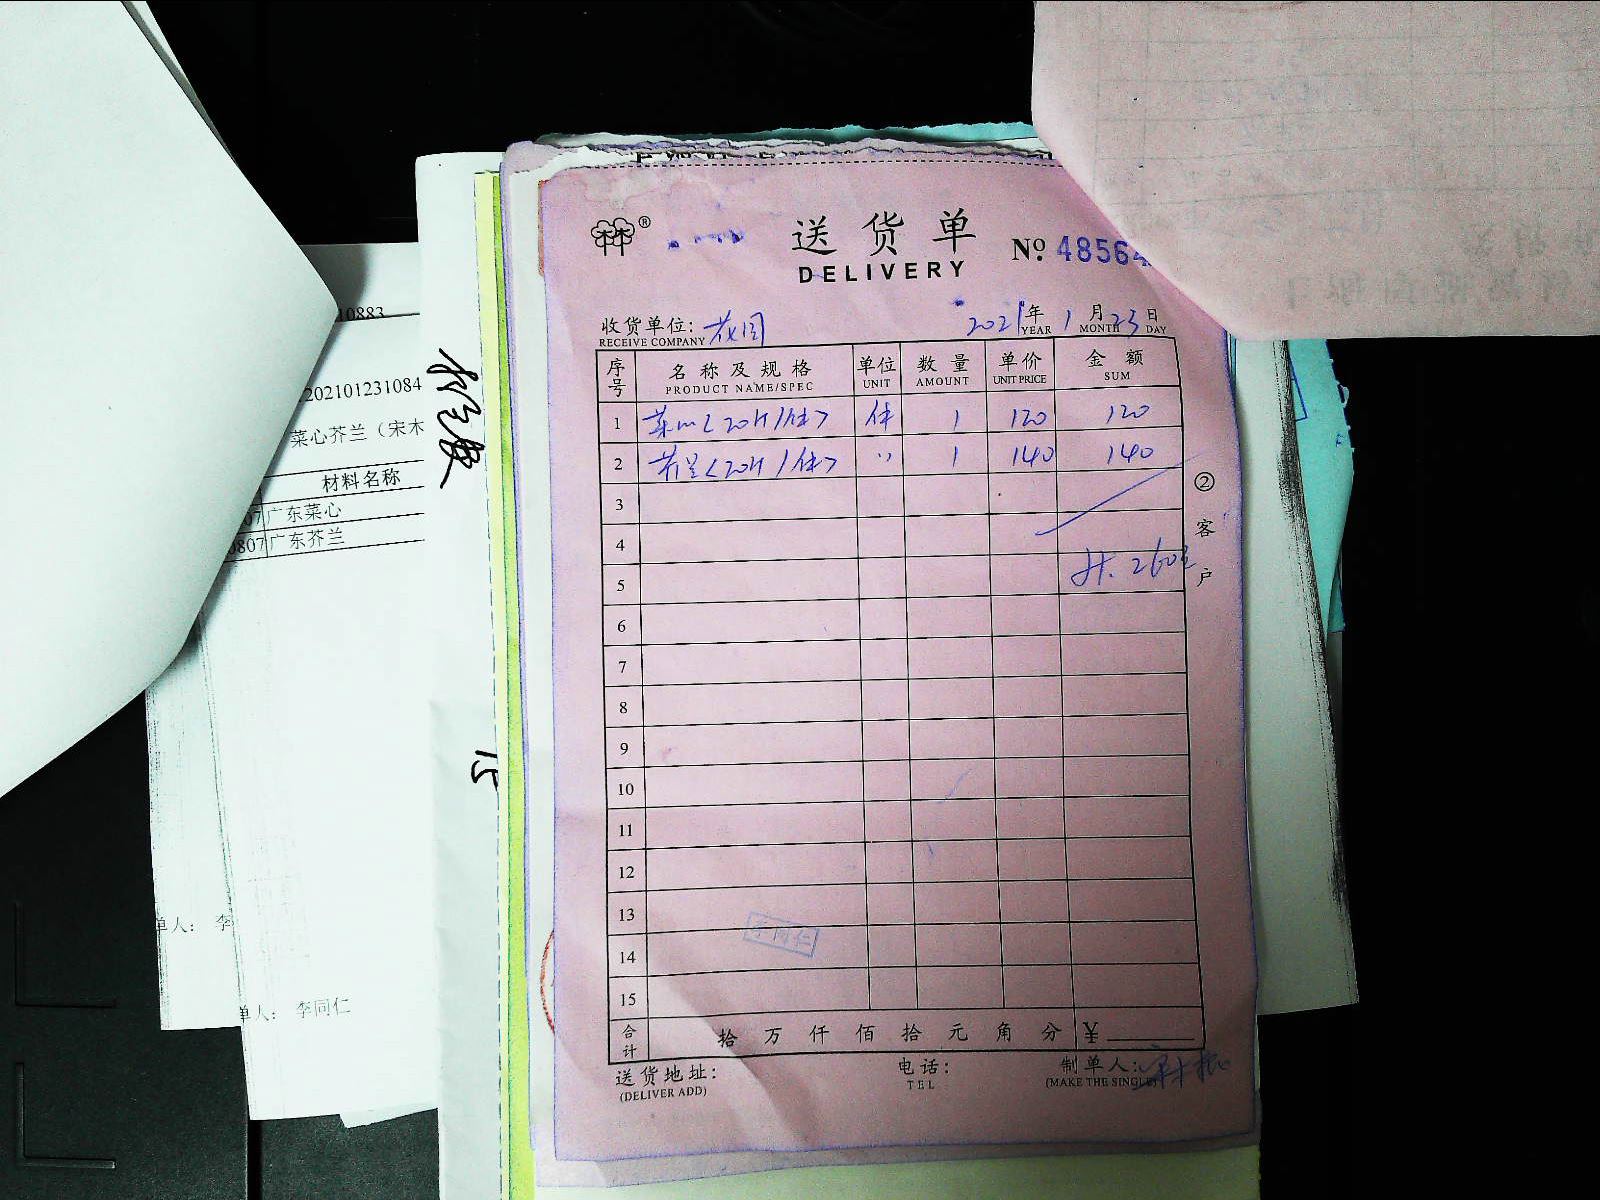 送货单
DELIVERY
No. 48564
收货单位: 花园
RECEIVE COMPANY
2021年 1月 23日
YEAR MONTH DAY
序号 名称及规格 单位 数量 单价 金额
PRODUCT NAME/SPEC UNIT AMOUNT UNIT PRICE SUM
1 菜心<20斤/件> 件 1 120 120
2 芥兰<20斤/件> 〃 1 140 140
3
4
5 共. 260元
6
7
8
9
10
11
12
13
14
15
李同仁
合计 拾 万 仟 佰 拾 元 角 分 ¥
送货地址: 电话: 制单人:
(DELIVER ADD) TEL (MAKE THE SINGLE)
②客户
10883
202101231084
菜心芥兰（宋木
材料名称
07广东菜心
0807广东芥兰
15
单人: 李
单人: 李同仁